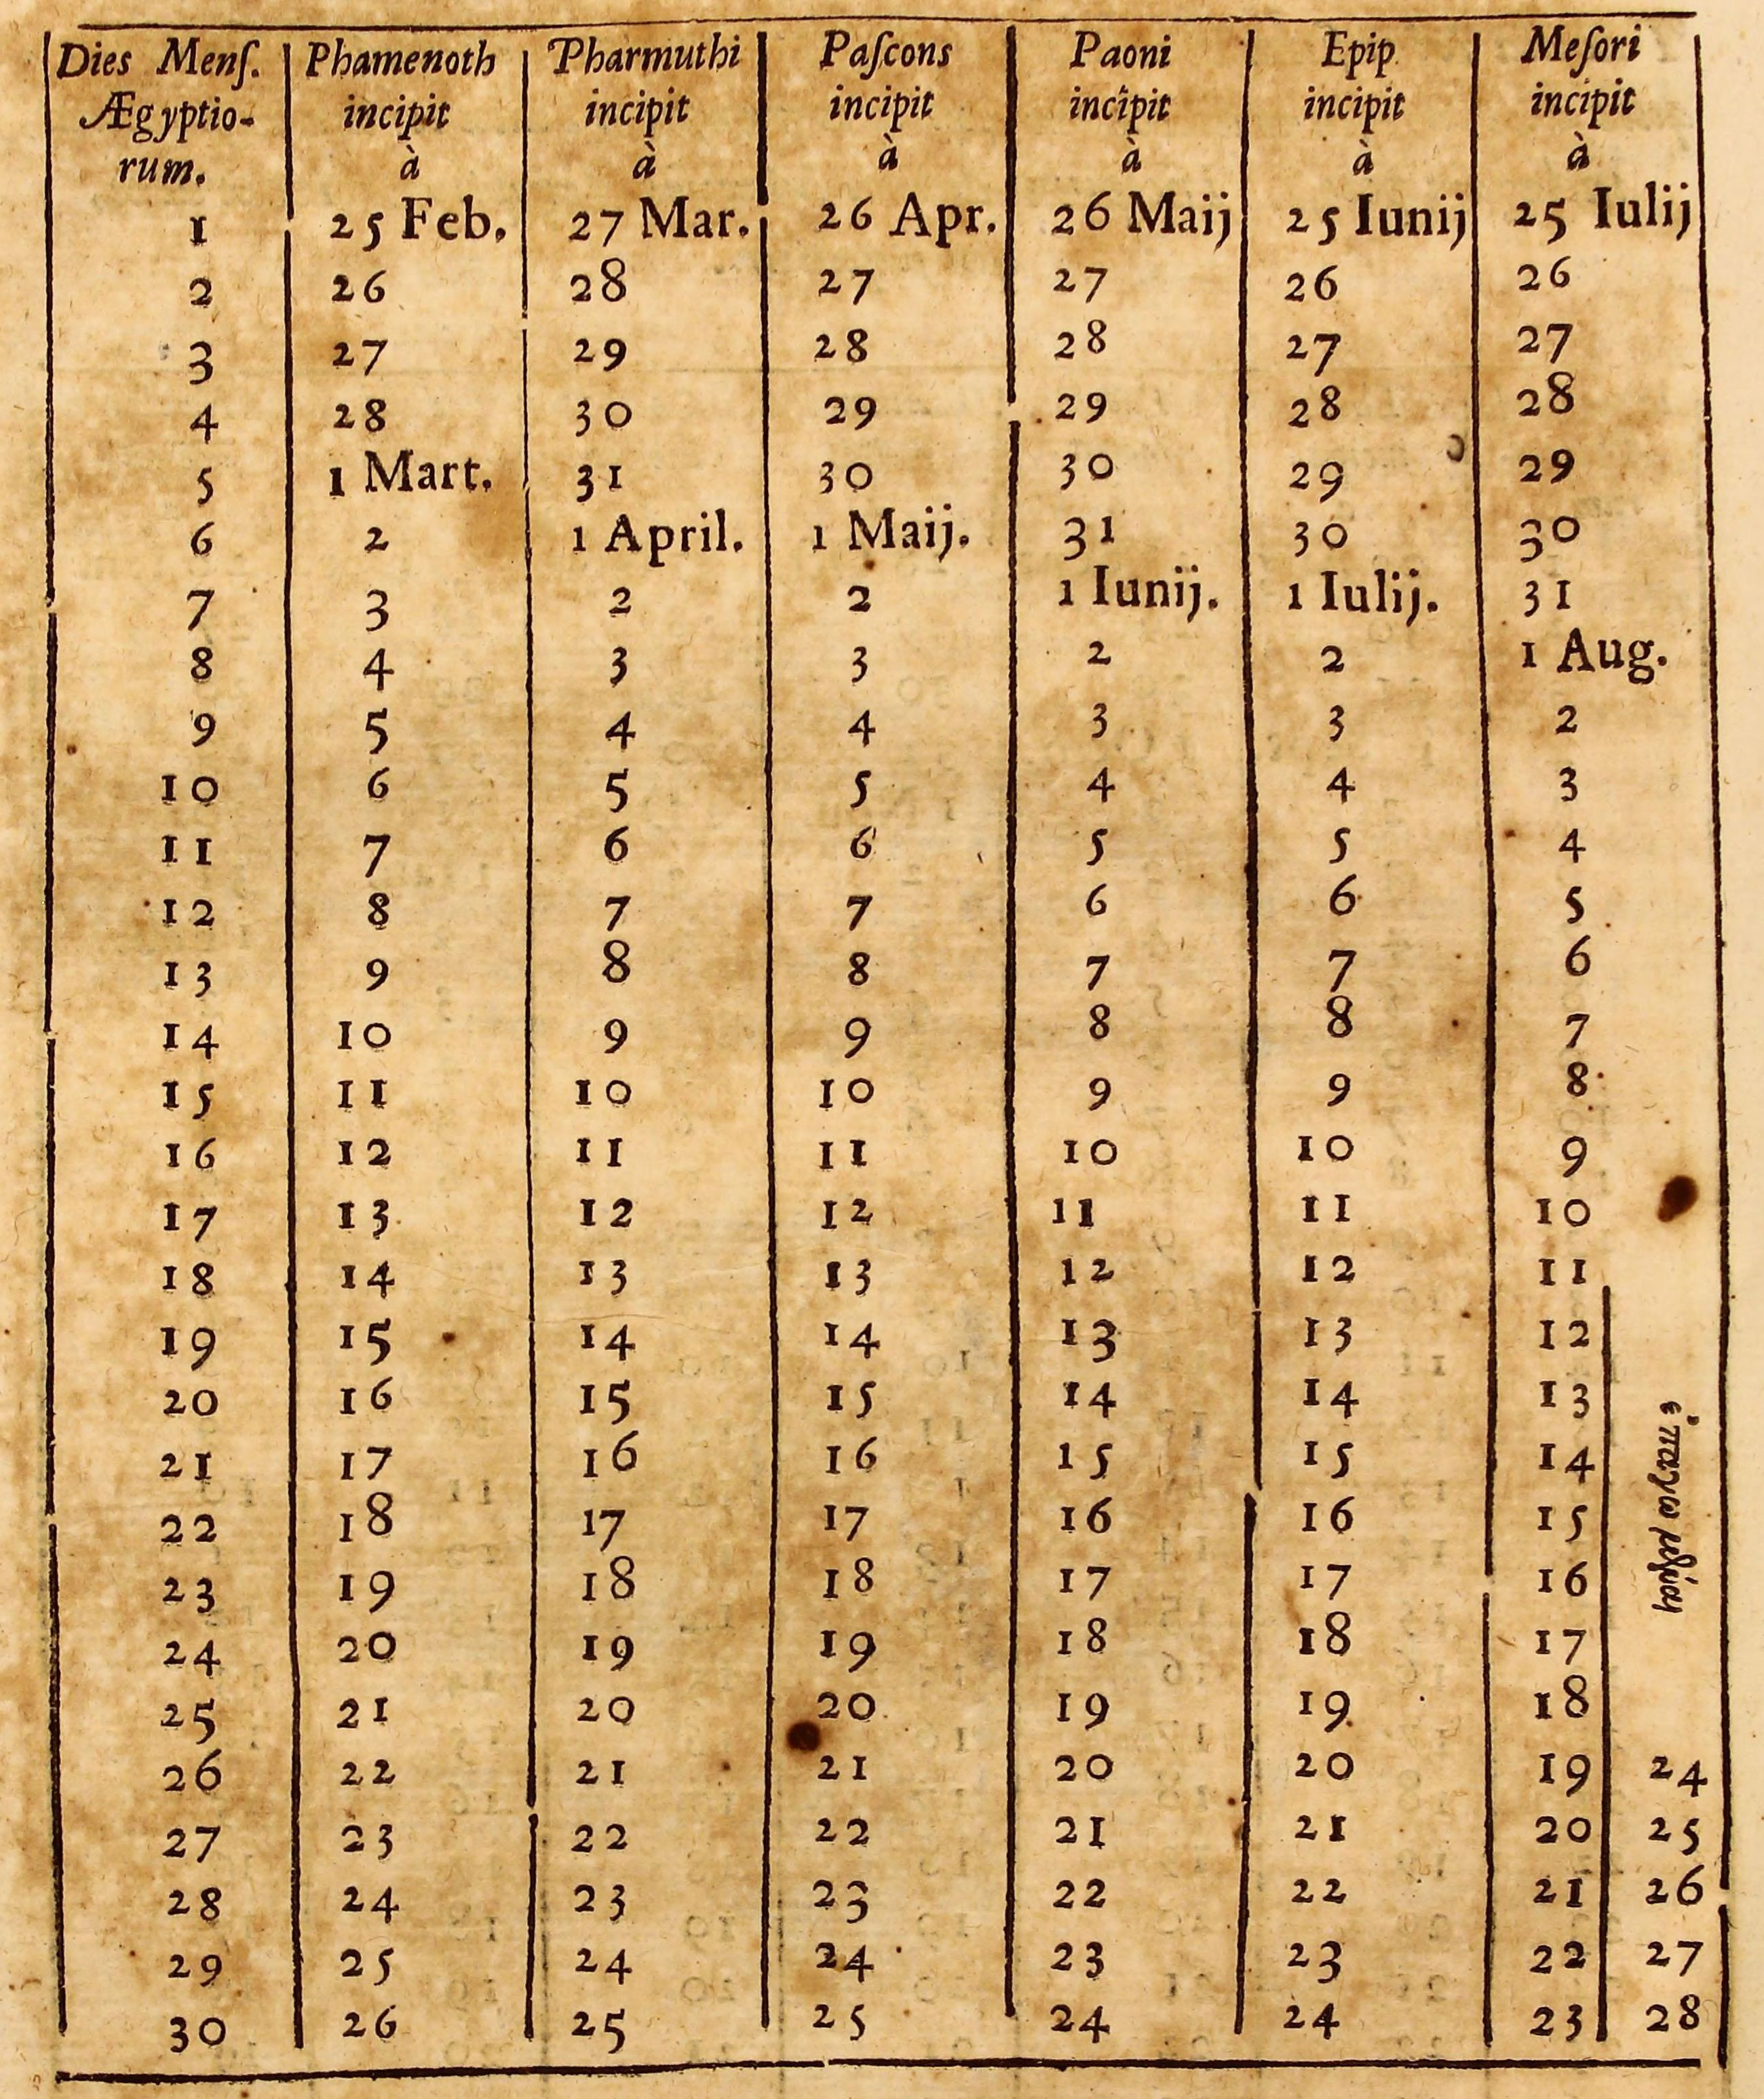 Dies Menſ. Phamenoth Pharmuthi Paſcons Paoni Epip Meſori
Ægyptio- incipit incipit incipit incipit incipit incipit
rum. à à à à à à
1 25 Feb. 27 Mar. 26 Apr. 26 Maij 25 Iunij 25 Iulij
2 26 28 27 27 26 26
3 27 29 28 28 27 27
4 28 30 29 29 28 28
5 1 Mart. 31 30 30 29 29
6 2 1 April. 1 Maij. 31 30 30
7 3 2 2 1 Iunij. 1 Iulij. 31
8 4 3 3 2 2 1 Aug.
9 5 4 4 3 3 2
10 6 5 5 4 4 3
11 7 6 6 5 5 4
12 8 7 7 6 6 5
13 9 8 8 7 7 6
14 10 9 9 8 8 7
15 11 10 10 9 9 8
16 12 11 11 10 10 9
17 13 12 12 11 11 10
18 14 13 13 12 12 11
19 15 14 14 13 13 12
20 16 15 15 14 14 13
21 17 16 16 15 15 14
22 18 17 17 16 16 15
23 19 18 18 17 17 16
24 20 19 19 18 18 17
25 21 20 20 19 19 18
ἐπαγωμέναι
26 22 21 21 20 20 19 24
27 23 22 22 21 21 20 25
28 24 23 23 22 22 21 26
29 25 24 24 23 23 22 27
30 26 25 25 24 24 23 28